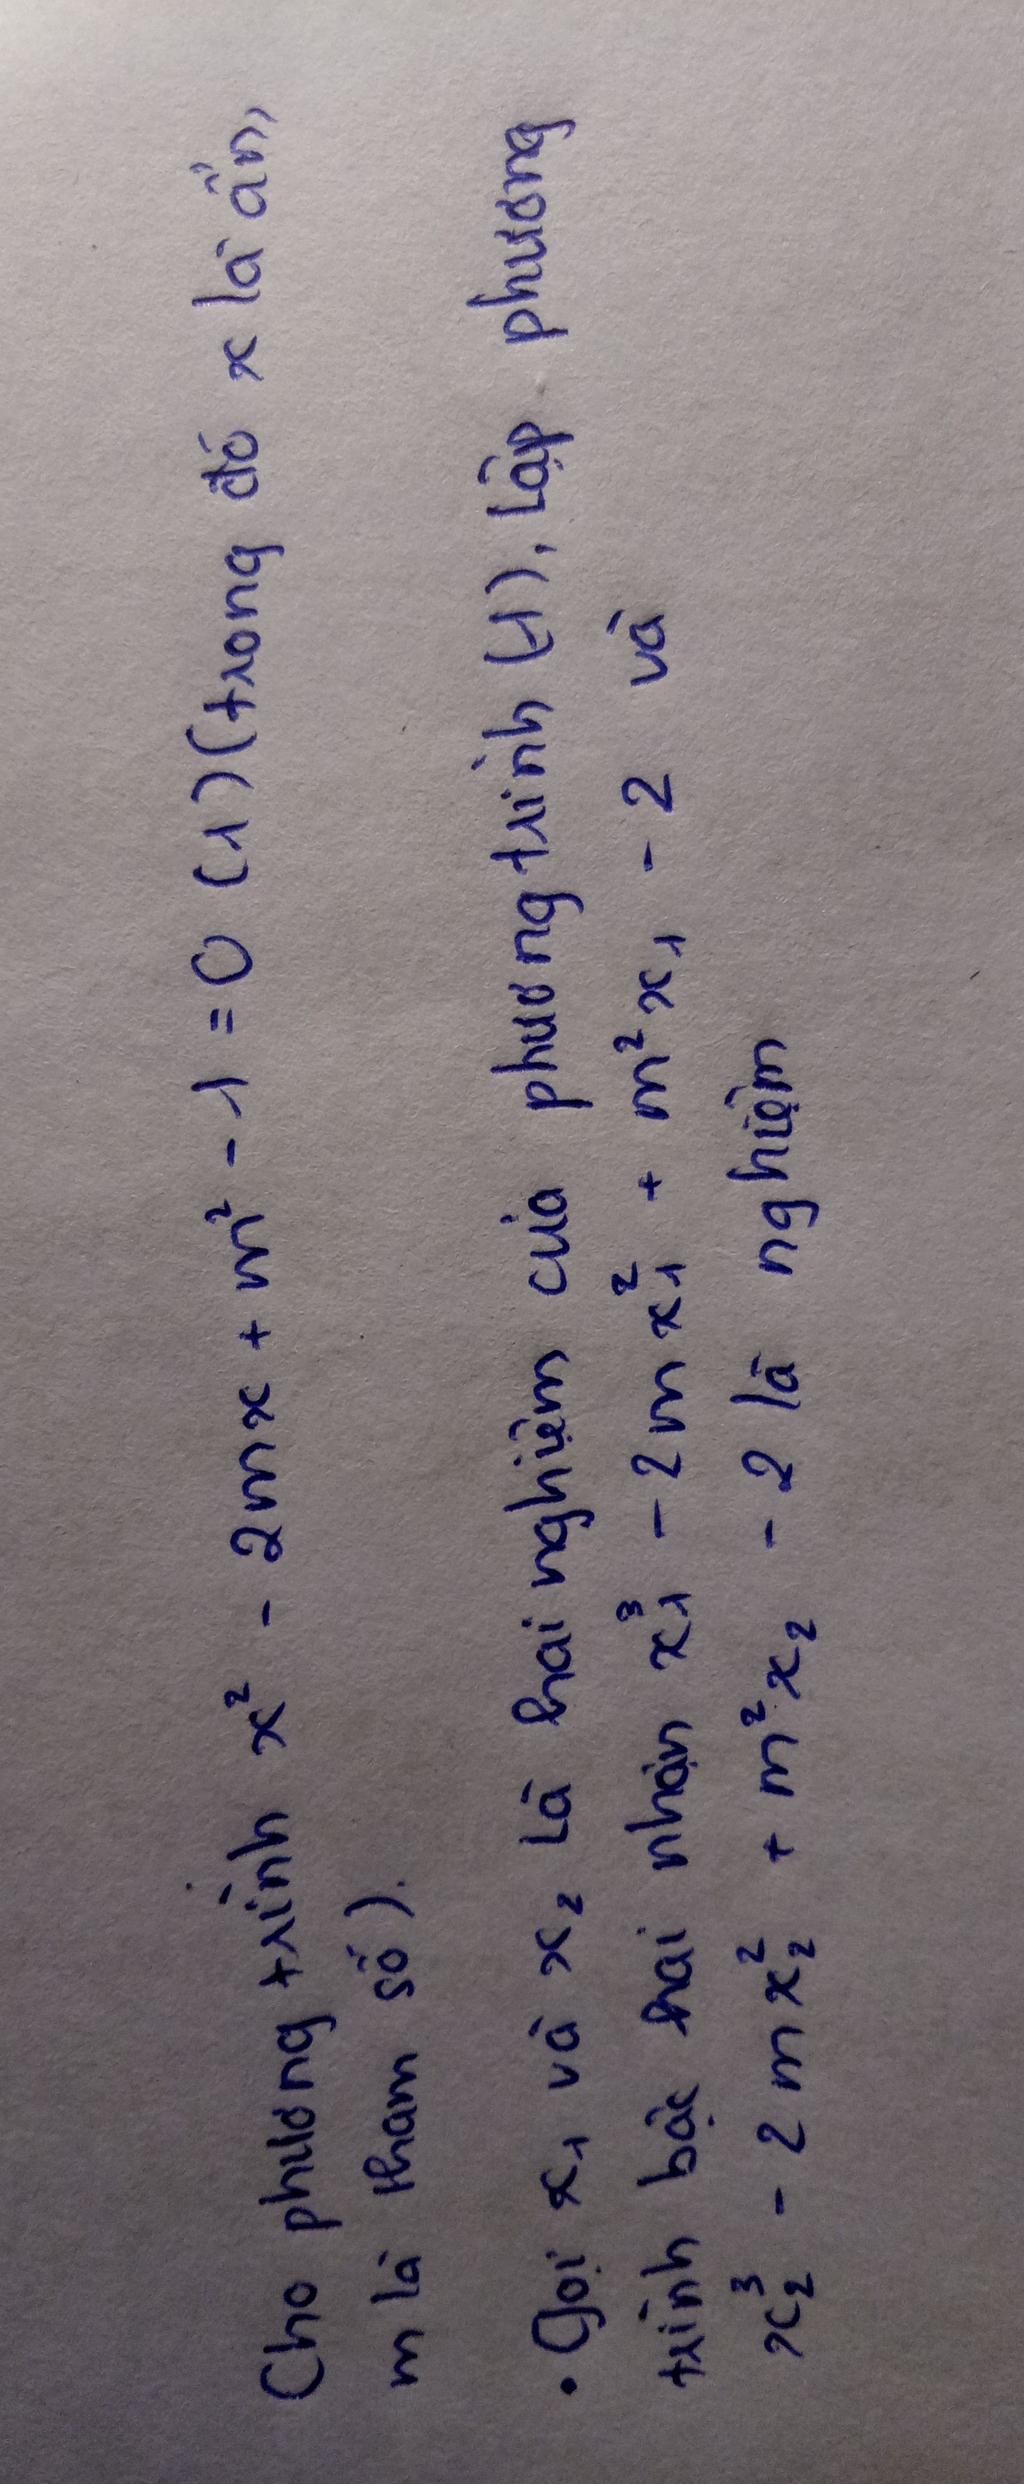 Cho phương trình x² - 2mx + m² - 1 = 0 (1) (trong đó x là ẩn,
m là tham số).
• Gọi x₁ và x₂ là hai nghiệm của phương trình (1). Lập phương
trình bậc hai nhận x₁³ - 2mx₁² + m²x₁ - 2 và
x₂³ - 2mx₂² + m²x₂ - 2 là nghiệm